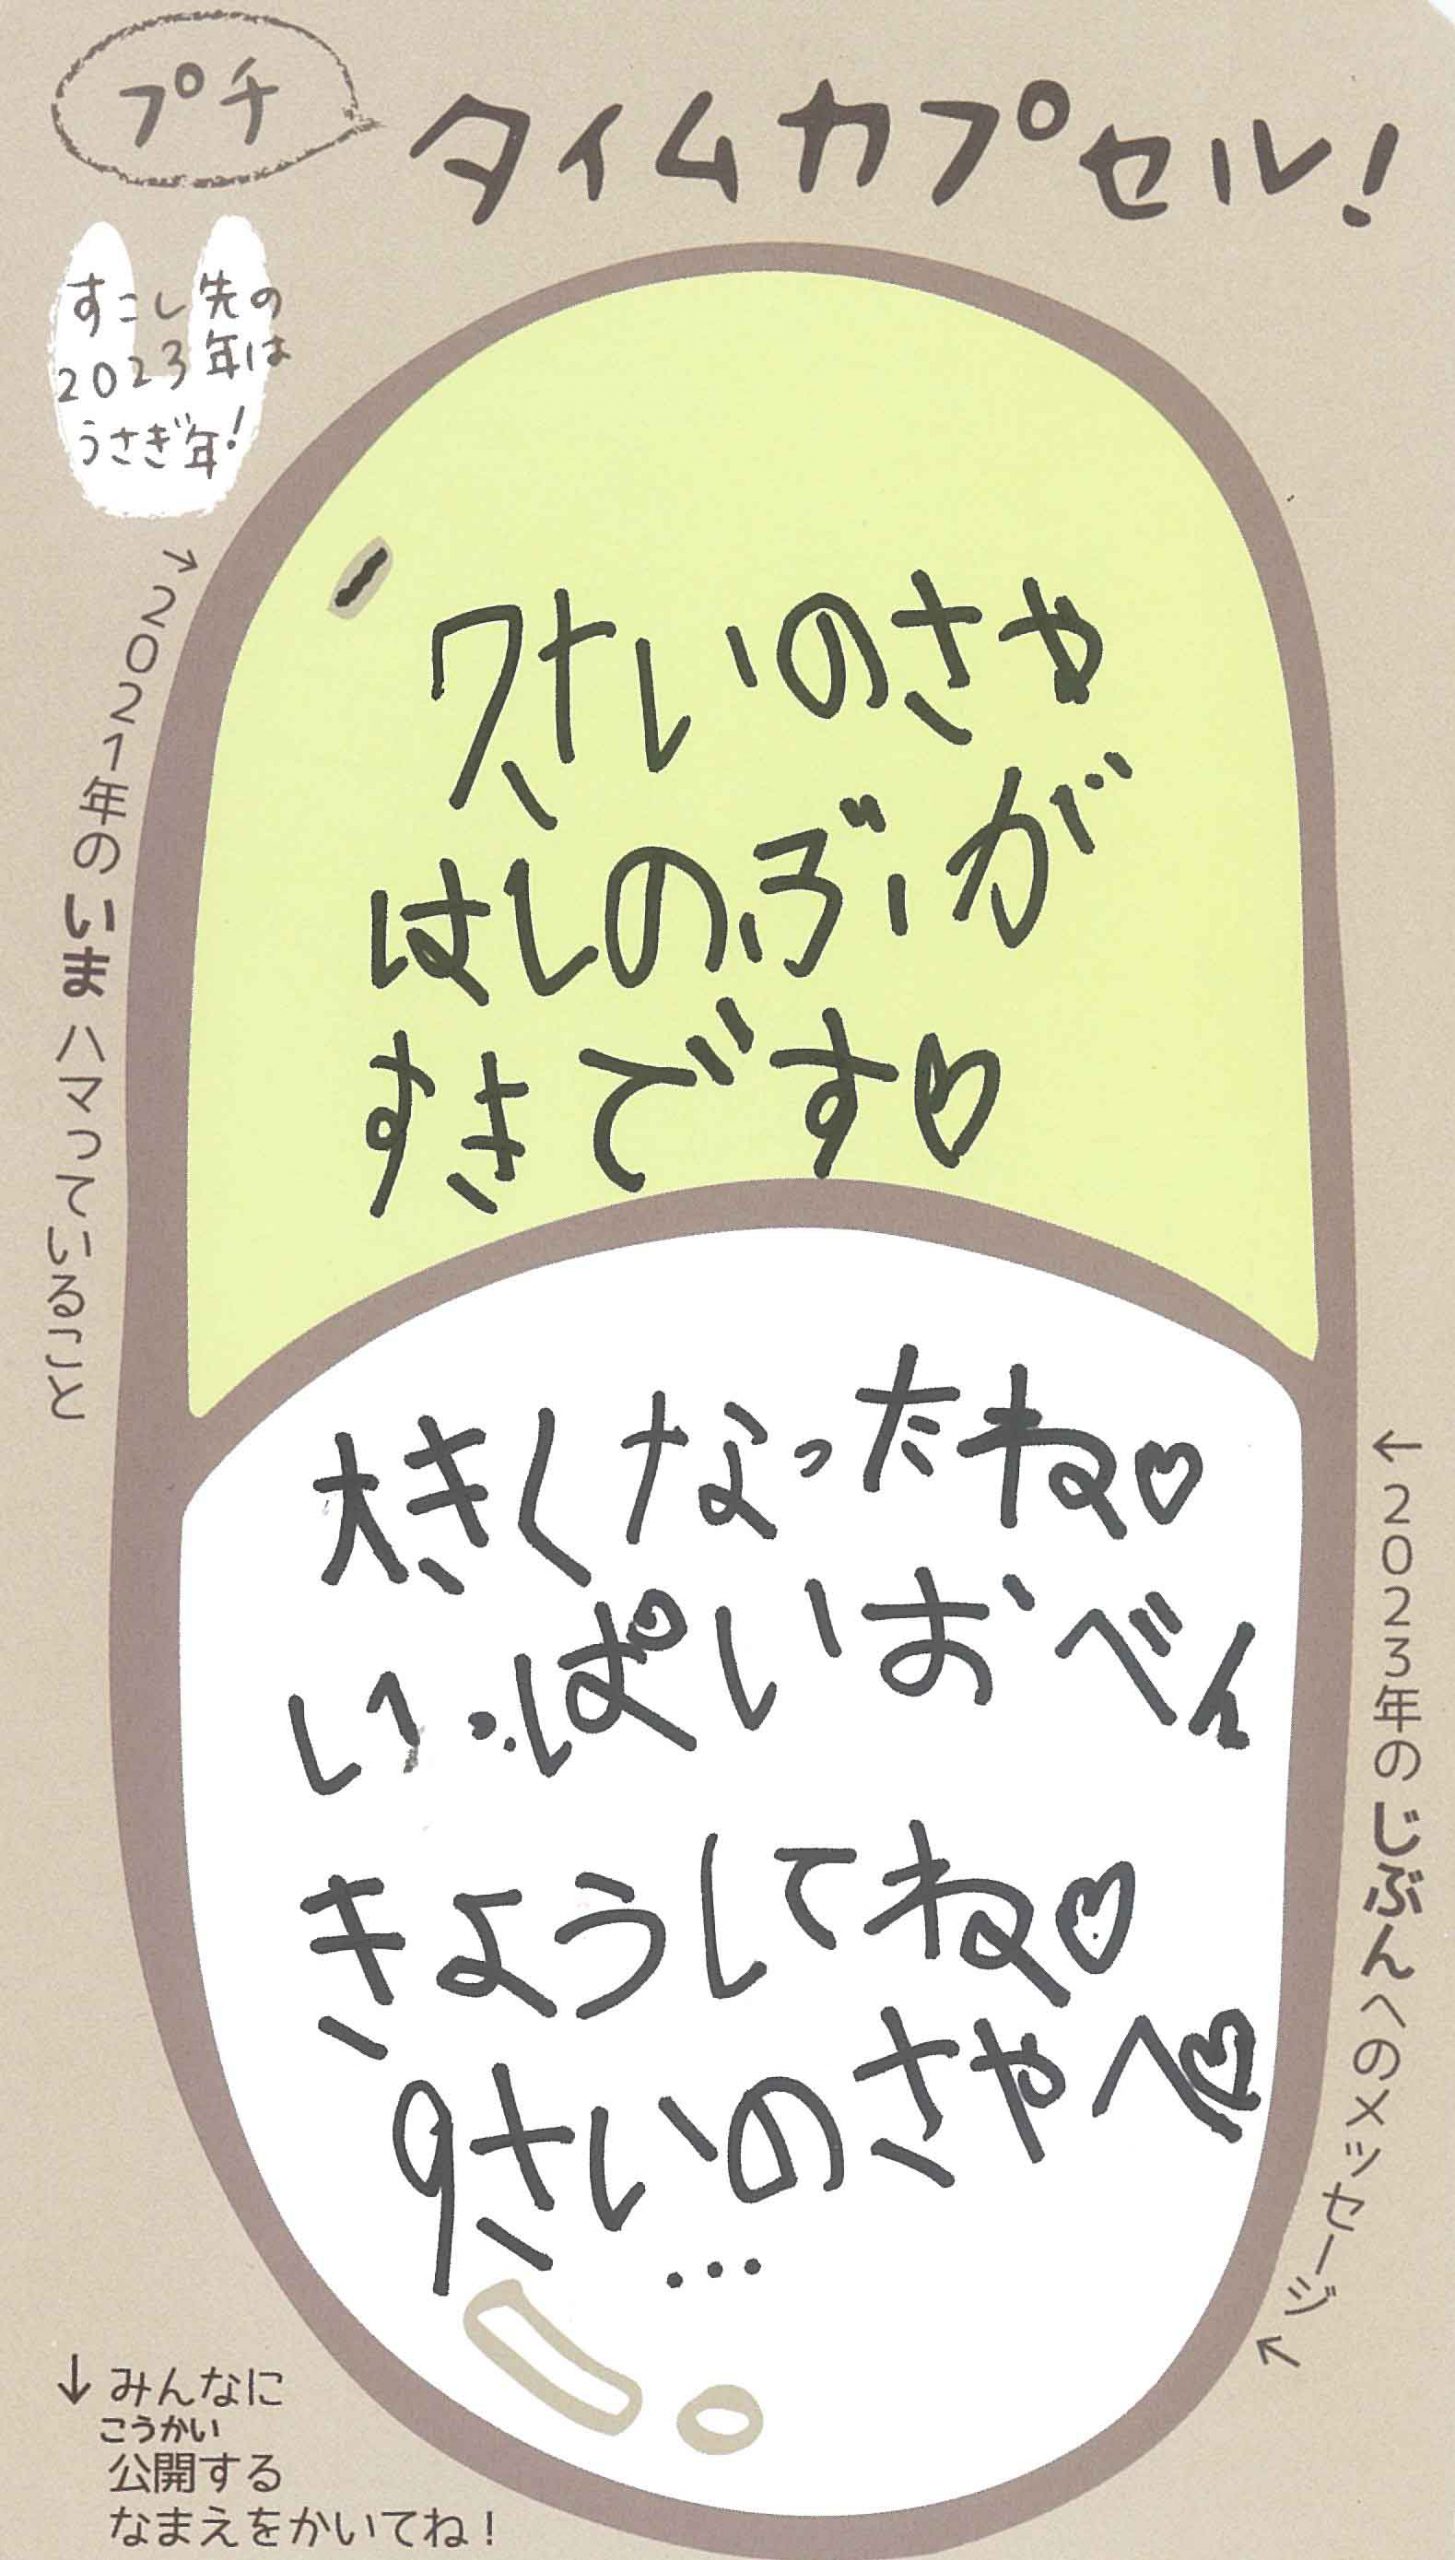 プチ
タイムカプセル!
すこし先の
2023年は
うさぎ年!
→2021年のいまハマっていること
7さいのさや
はしのぶが
すきです♡
大きくなったね♡
いっぱいおべん
きょうしてね♡
9さいのさやへ♡
…
←2023年のじぶんへのメッセージ←
↓みんなに
こうかい
公開する
なまえをかいてね!